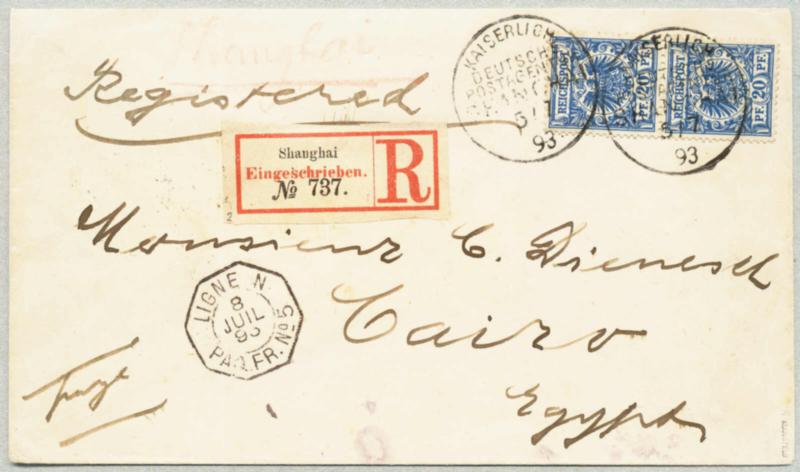 Shanghai
Registered
KAISERLICH
DEUTSCHE
POSTAGENT
93
KAISERLICH
5/7
93
REICHSPOST 20 PF
REICHSPOST 20 PF
Shanghai
Eingeschrieben.
№ 737.
R
Monsieur C. Dienesch
Cairo
Egypt
LIGNE N
8
JUIL
93
PAQ. FR. No 5